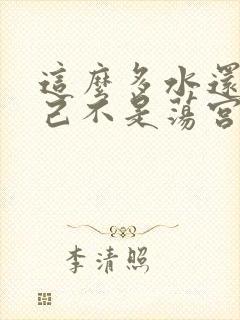 這麼多水還
己不是蕩宮
李清照